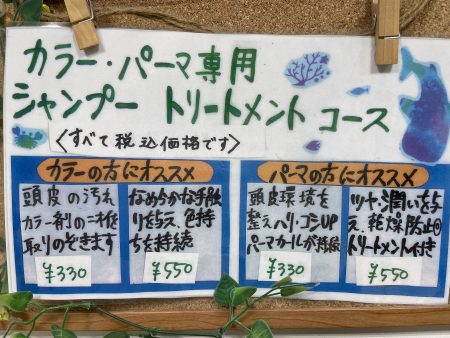 カラー・パーマ専用
シャンプー トリートメント コース
〈すべて税込価格です〉
カラーの方にオススメ
頭皮の汚れ
カラー剤の二材を
取りのぞきます
¥330
なめらかな手触
りを与え、色持
ちを持続
¥550
パーマの方にオススメ
頭皮環境を
整えハリ・コシUP
パーマカールが持続
¥330
ツヤ、潤いを与
え、乾燥防止
トリートメント付き
¥550